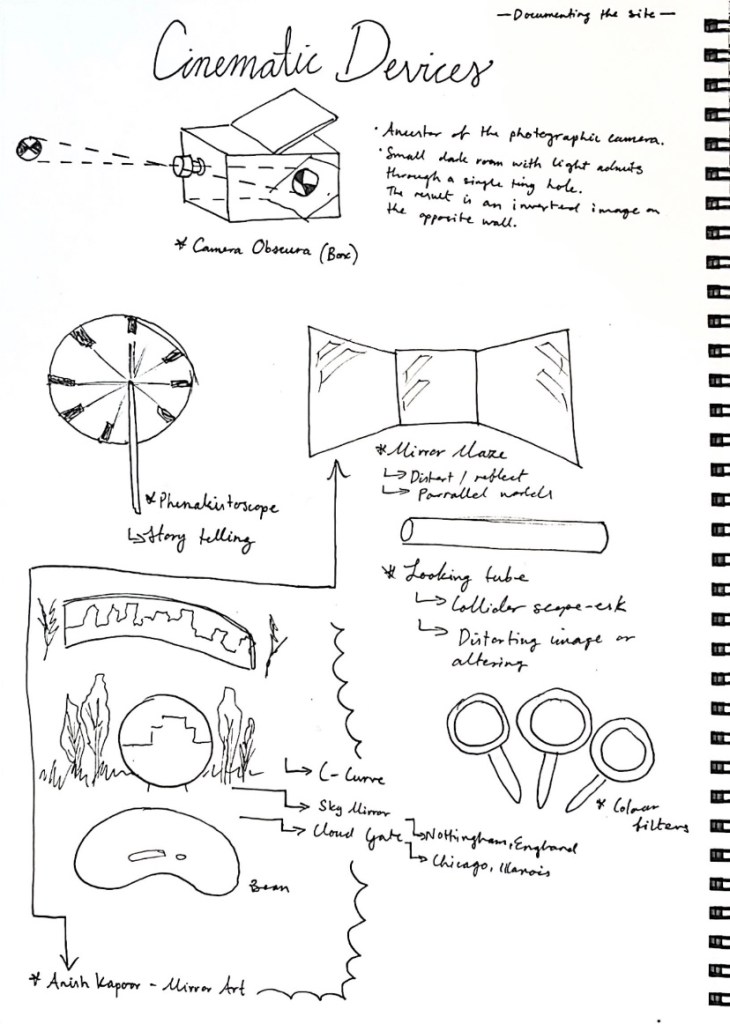 — Documenting the site —
Cinematic Devices
• Ancestor of the photographic camera.
• Small dark room with light admits
through a single tiny hole.
The result is an inverted image on
the opposite wall.
* Camera Obscura (Box)
* Mirror Maze
↳ Distort / reflect
↳ Parrallel worlds
* Phenakistoscope
↳ Story telling
* Looking tube
↳ Collider scope-esk
↳ Distorting image or
altering
* Colour
filters
↳ C-Curve
↳ Sky Mirror
↳ Cloud Gate
↳ Nottingham, England
↳ Chicago,
Bean
* Anish Kapoor - Mirror Art